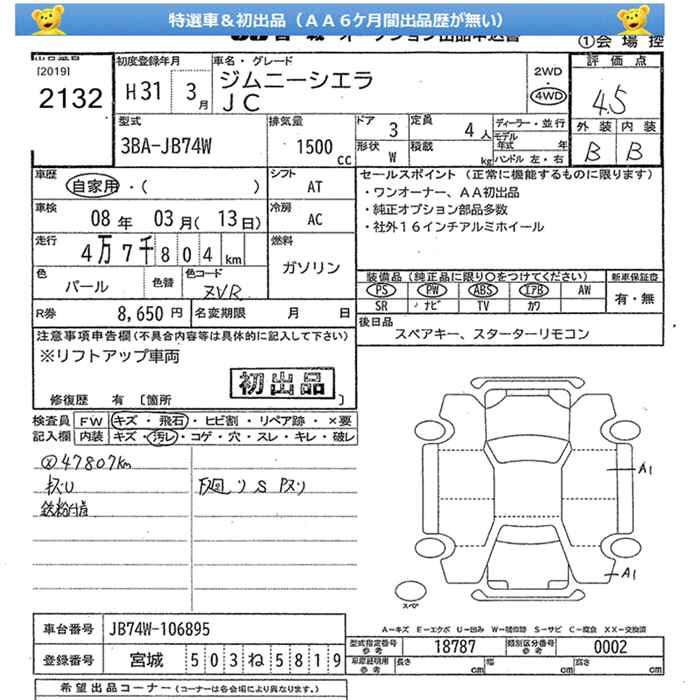 特選車＆初出品（ＡＡ６ケ月間出品歴が無い）
①会 場 控
[2019]
2132
初度登録年月
H31 3月
車名・グレード
ジムニーシエラ
JC
2WD
・
4WD
評 価 点
4.5
外装 内装
B B
型式
3BA-JB74W
排気量
1500 cc
ドア 3
定員 4人
形状 W
積載 kg
ディーラー・並行
モデル年式 年
ハンドル 左・右
車歴 自家用・( )
シフト AT
車検 08年 03月( 13日)
冷房 AC
走行 4万7千804km
燃料 ガソリン
色 パール
色替
色コード ZVR
R券 8,650円
名変期限 月 日
セールスポイント（正常に機能するものに限ります）
・ワンオーナー、ＡＡ初出品
・純正オプション部品多数
・社外１６インチアルミホイール
装備品（純品に限り○をつけてください）
新車保証書
PS PW ABS エアB AW
SR ナビ TV カワ
有・無
後日品
スペアキー、スターターリモコン
注意事項申告欄(不具合内容等は具体的に記入して下さい)
※リフトアップ車両
初出品
修復歴 有 [箇所 ]
検査員 FW キズ・飛石・ヒビ割・リペア跡・×要
記入欄 内装 キズ・汚レ・コゲ・穴・スレ・キレ・破レ
47807km
キズU
鉄粉付着
下廻りS Pスリ
A1
A1
スペア
A－キズ E－エクボ U－凹み W－補修跡 S－サビ C－腐食 XX－交換済
車台番号 JB74W-106895
登録番号 宮城 503ね5819
型式指定番号 参考 18787
類別区分番号 参考 0002
車庫証明用 参考 長さ cm 幅 cm 高さ cm
希望出品コーナー（コーナーは各会場により異なります。）